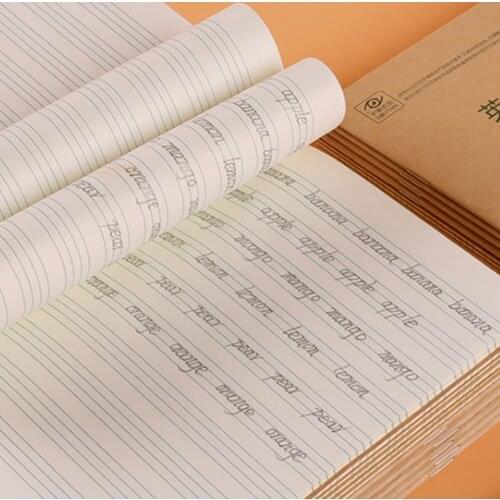 apple
banana banana
lemon lemon
mango
orange
pear pear
banana banana banana banana
apple apple apple apple apple
mango mango mango mango
lemon lemon lemon lemon
pear pear pear pear pear
orange orange orange orange orange
英